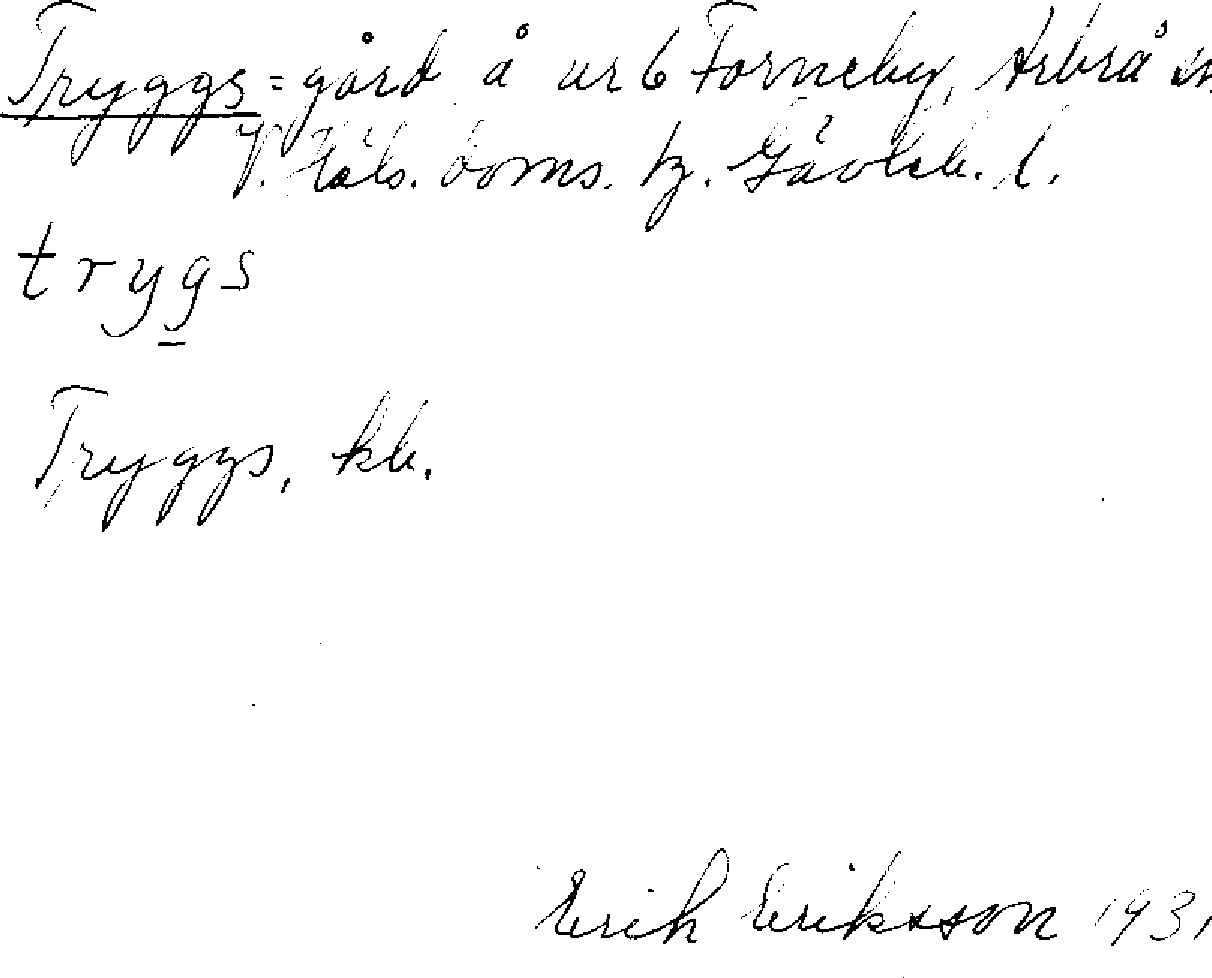 Tryggs = gård å nr 6 Forneby, Arbrå sn
V. Häls. doms. hz. Gävleb. l.
trygs
Tryggs, kb.
Erik Eriksson 1931